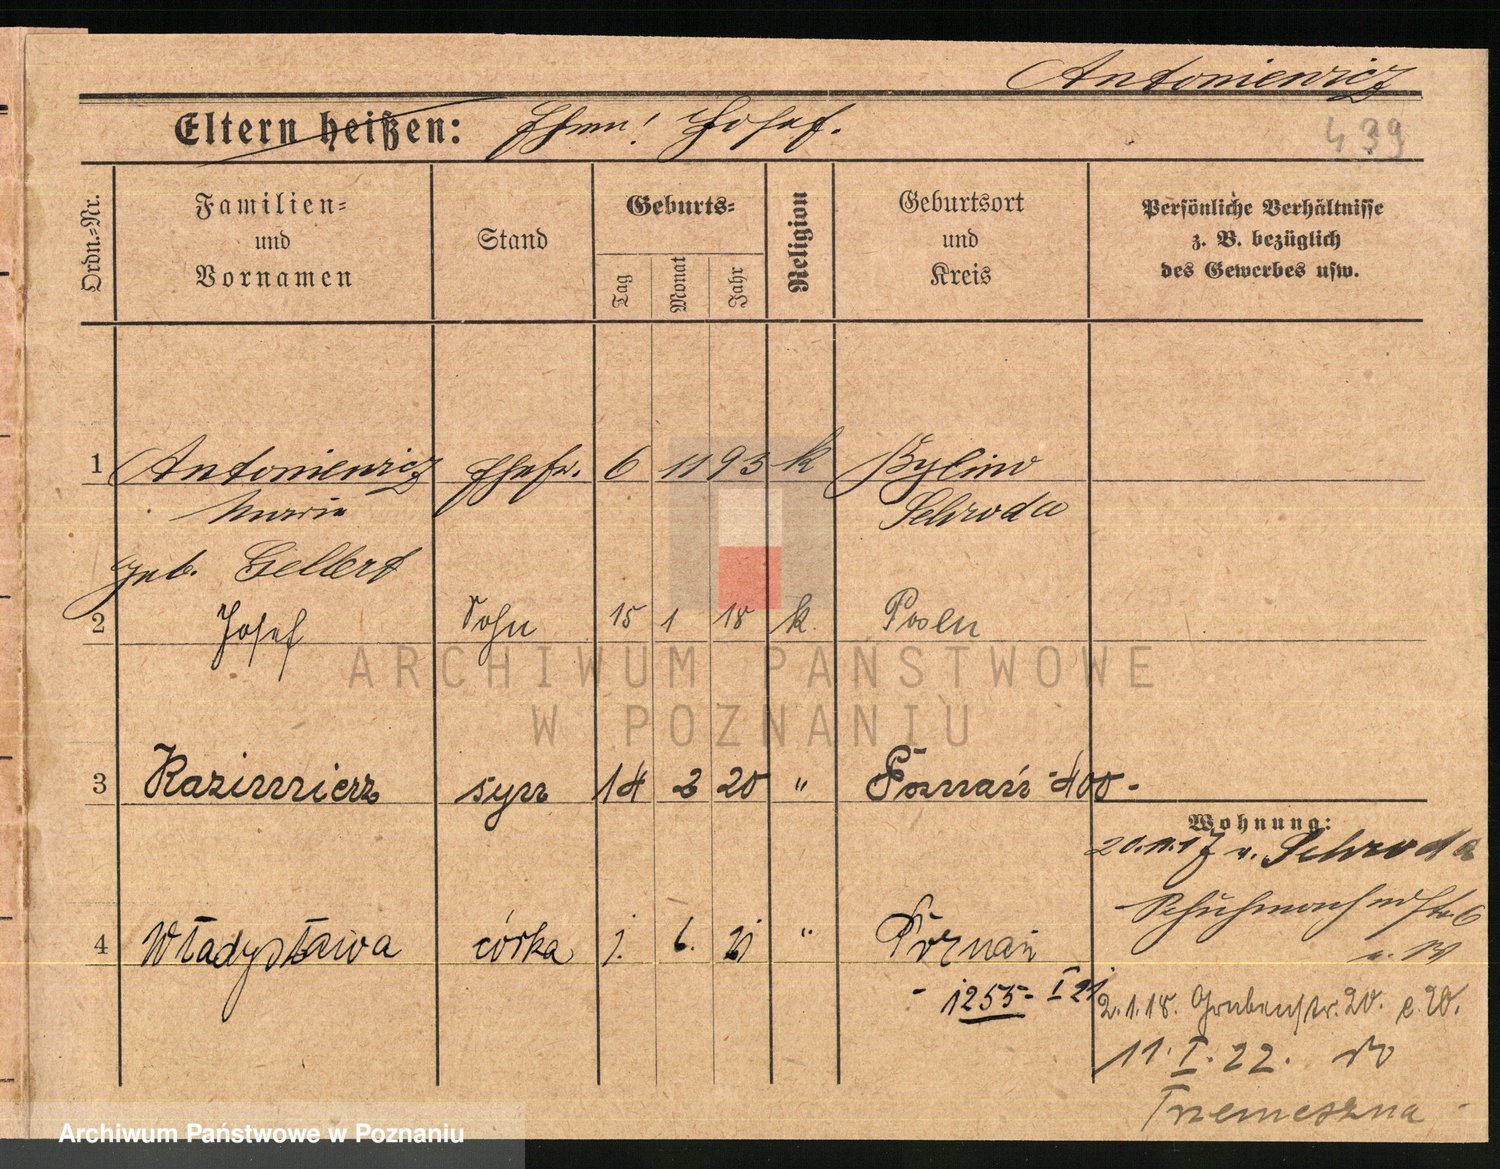 Antoniewicz
Eltern heißen: Ehem! Josef.
439
Ordn.-Nr.
Familien-
und
Vornamen
Stand
Geburts-
Tag
Monat
Jahr
Religion
Geburtsort
und
Kreis
Persönliche Verhältnisse
z. B. bezüglich
des Gewerbes usw.
1 Antoniewicz Ehefr. 6 11 93 k Bylin
Marie Schroda
geb. Gellert
2 Josef Sohn 15 1 18 k. Posen
ARCHIWUM PAŃSTWOWE
W POZNANIU
3 Kazimierz syn 14 2 20 " Poznań 400 -
Wohnung:
20.11.17 v. Schroda
4 Władysława córka 1. 6. 21 " Poznań
- 1255 - I 21
2.1.18. Grabenstr. 20.
11. I. 22. do
Trzemeszna
Archiwum Państwowe w Poznaniu